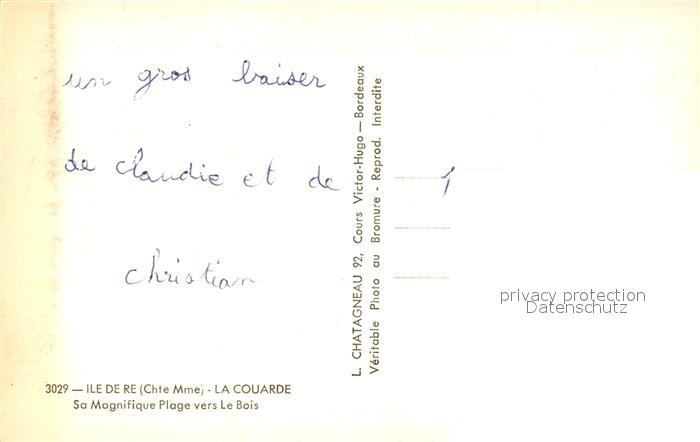 un gros baiser
de claudie et de
christian
3029 — ILE DE RE (Chte Mme) - LA COUARDE
Sa Magnifique Plage vers Le Bois
L. CHATAGNEAU 92, Cours Victor-Hugo — Bordeaux
Véritable Photo au Bromure - Reprod. Interdite
privacy protection
Datenschutz